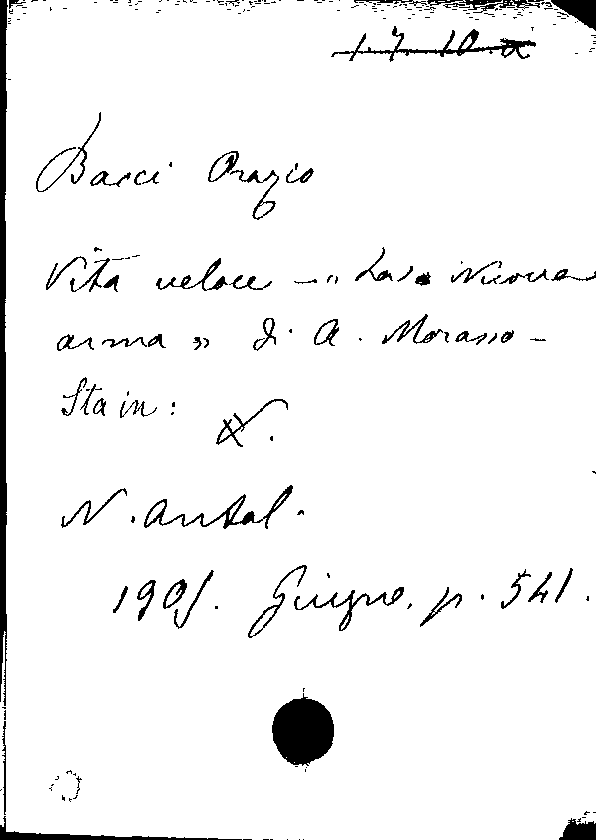 1.7.10.a
Bacci Orazio
Vita veloce - "La Nuova
arma" di A. Morasso -
Sta in:
N. Antol.
1905. Giugno, p. 541.